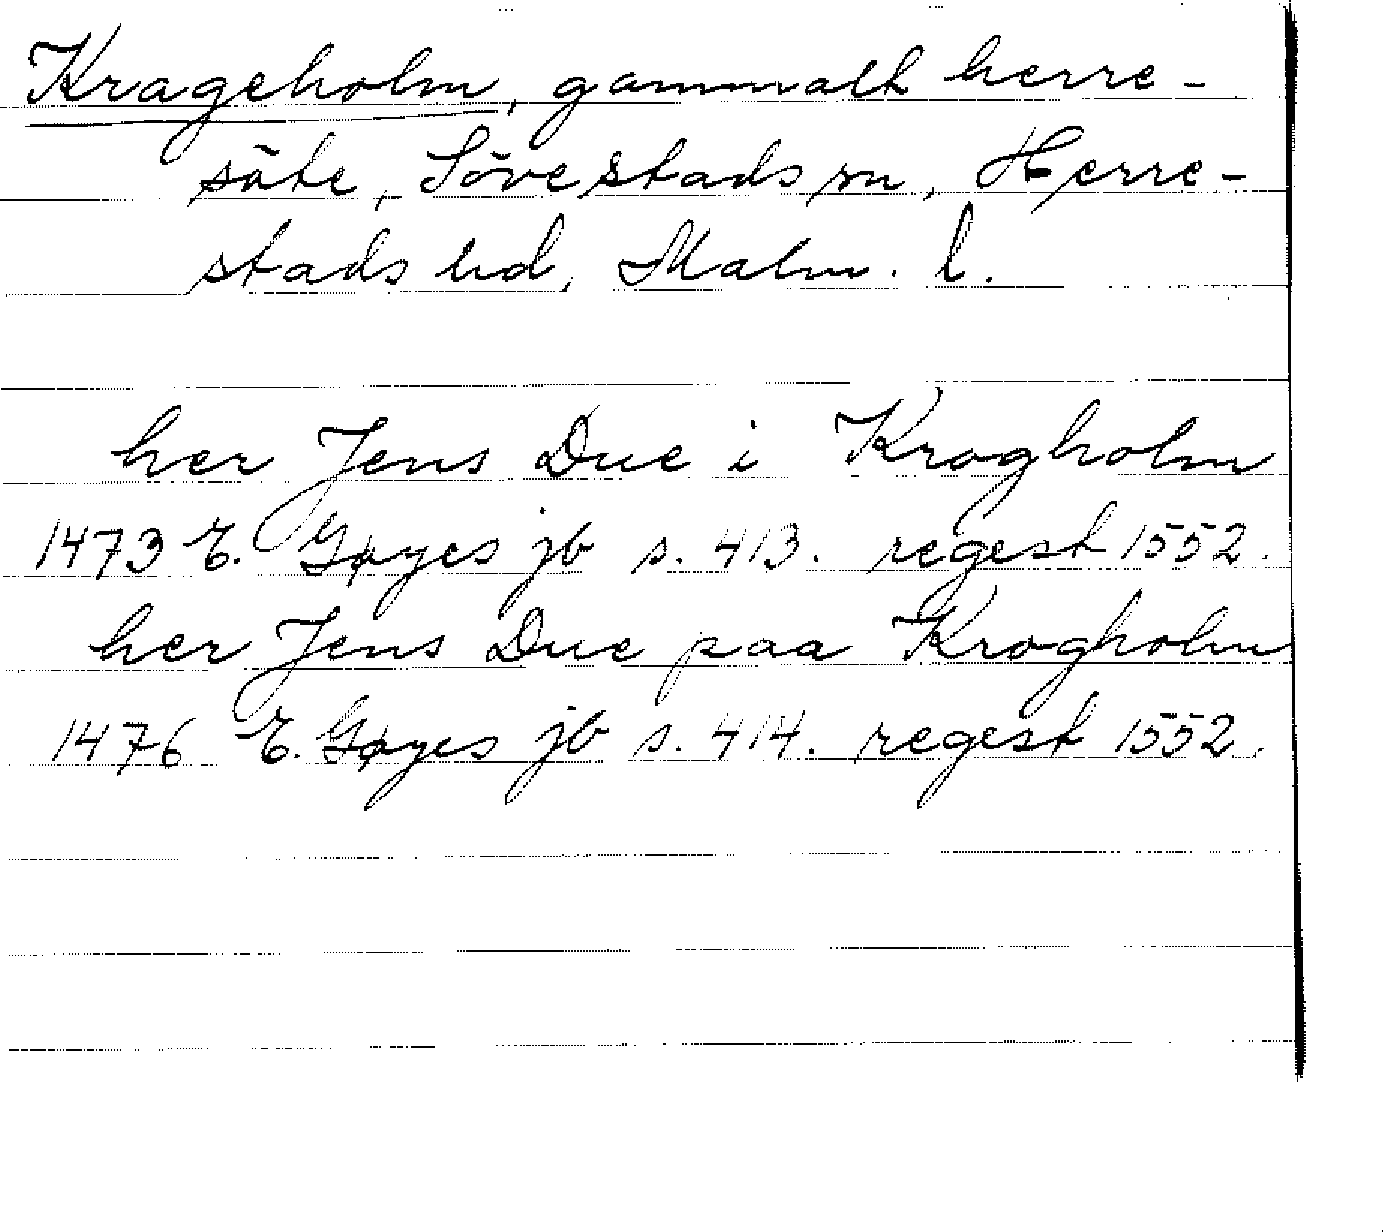 Krageholm, gammalt herre-
säte, Sövestads sn, Herre-
stads hd, Malm. l.
her Jens Due i Krogholm
1473 E. Gøyes jb s. 413. regest 1552.
her Jens Due paa Krogholm
1476 E. Gøyes jb s. 414. regest 1552.